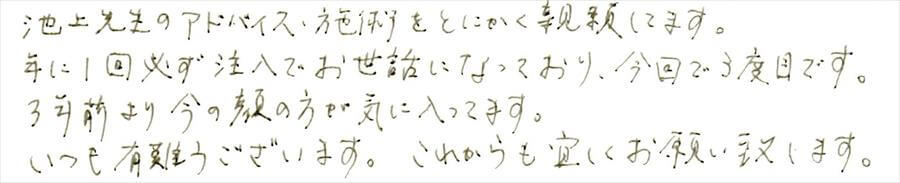 池上先生のアドバイス、施術をとにかく親頼してます。
年に1回必ず注入でお世話になっており、今回で3度目です。
3年前より今の顔の方が気に入ってます。
いつも有難うございます。これからも宜しくお願い致します。